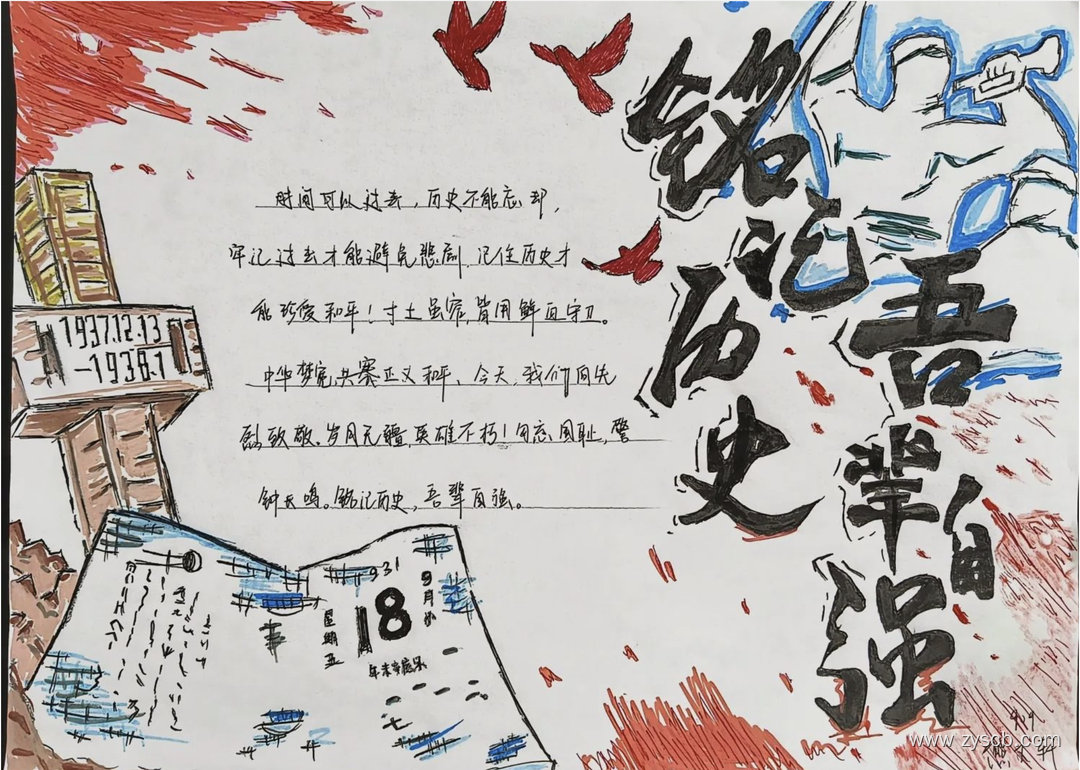 铭记历史
吾辈自强
时间可以过去，历史不能忘却，
牢记过去才能避免悲剧，记住历史才
能珍爱和平！寸土虽窄，皆用鲜血守卫。
中华梦宽，共襄正义和平、今天，我们向先
烈致敬、岁月无疆，英雄不朽！勿忘国耻，警
钟长鸣。铭记历史，吾辈自强。
1937.12.13
-1938.1
1931
9月
18
星期五
年未辛
www.zysqb.com